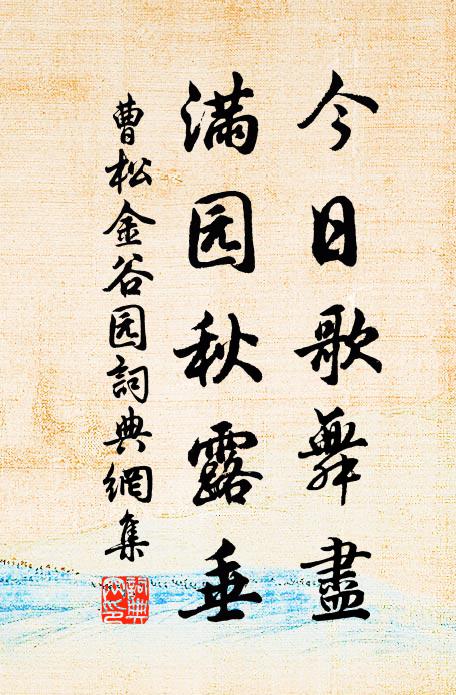 今日歌舞盡
满园秋露垂
曹松金谷园詞典網集